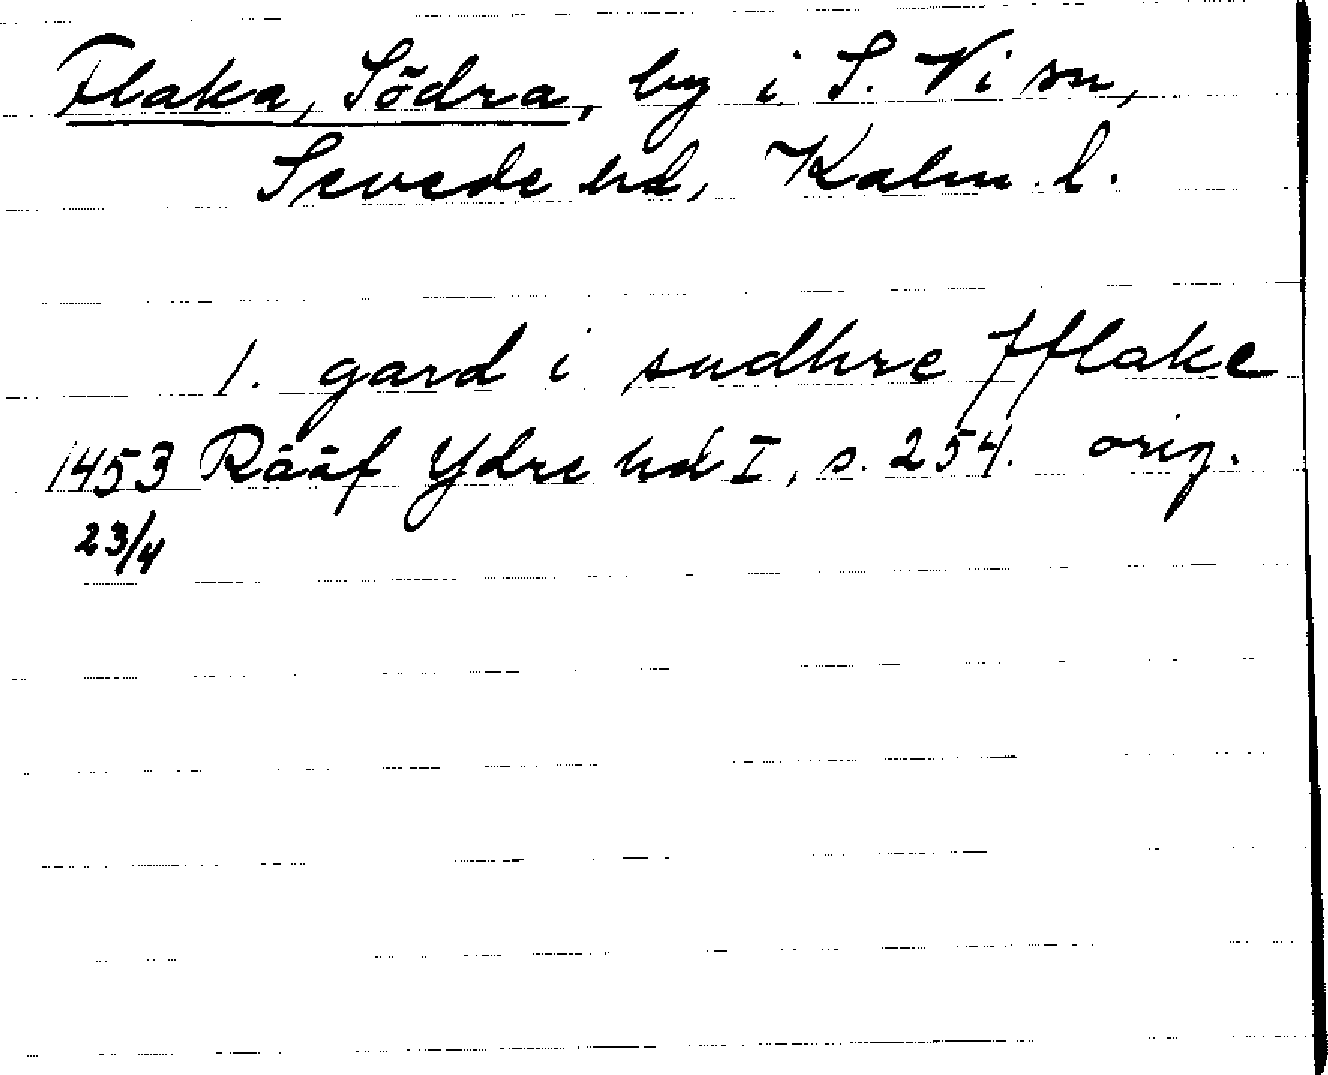 Flaka, Södra, by i S. Vi sn,
Sevede hd, Kalm. l.
1. gard i sudhre fflake
1453 Rääf Ydre hd I, s. 254. orig.
23/4